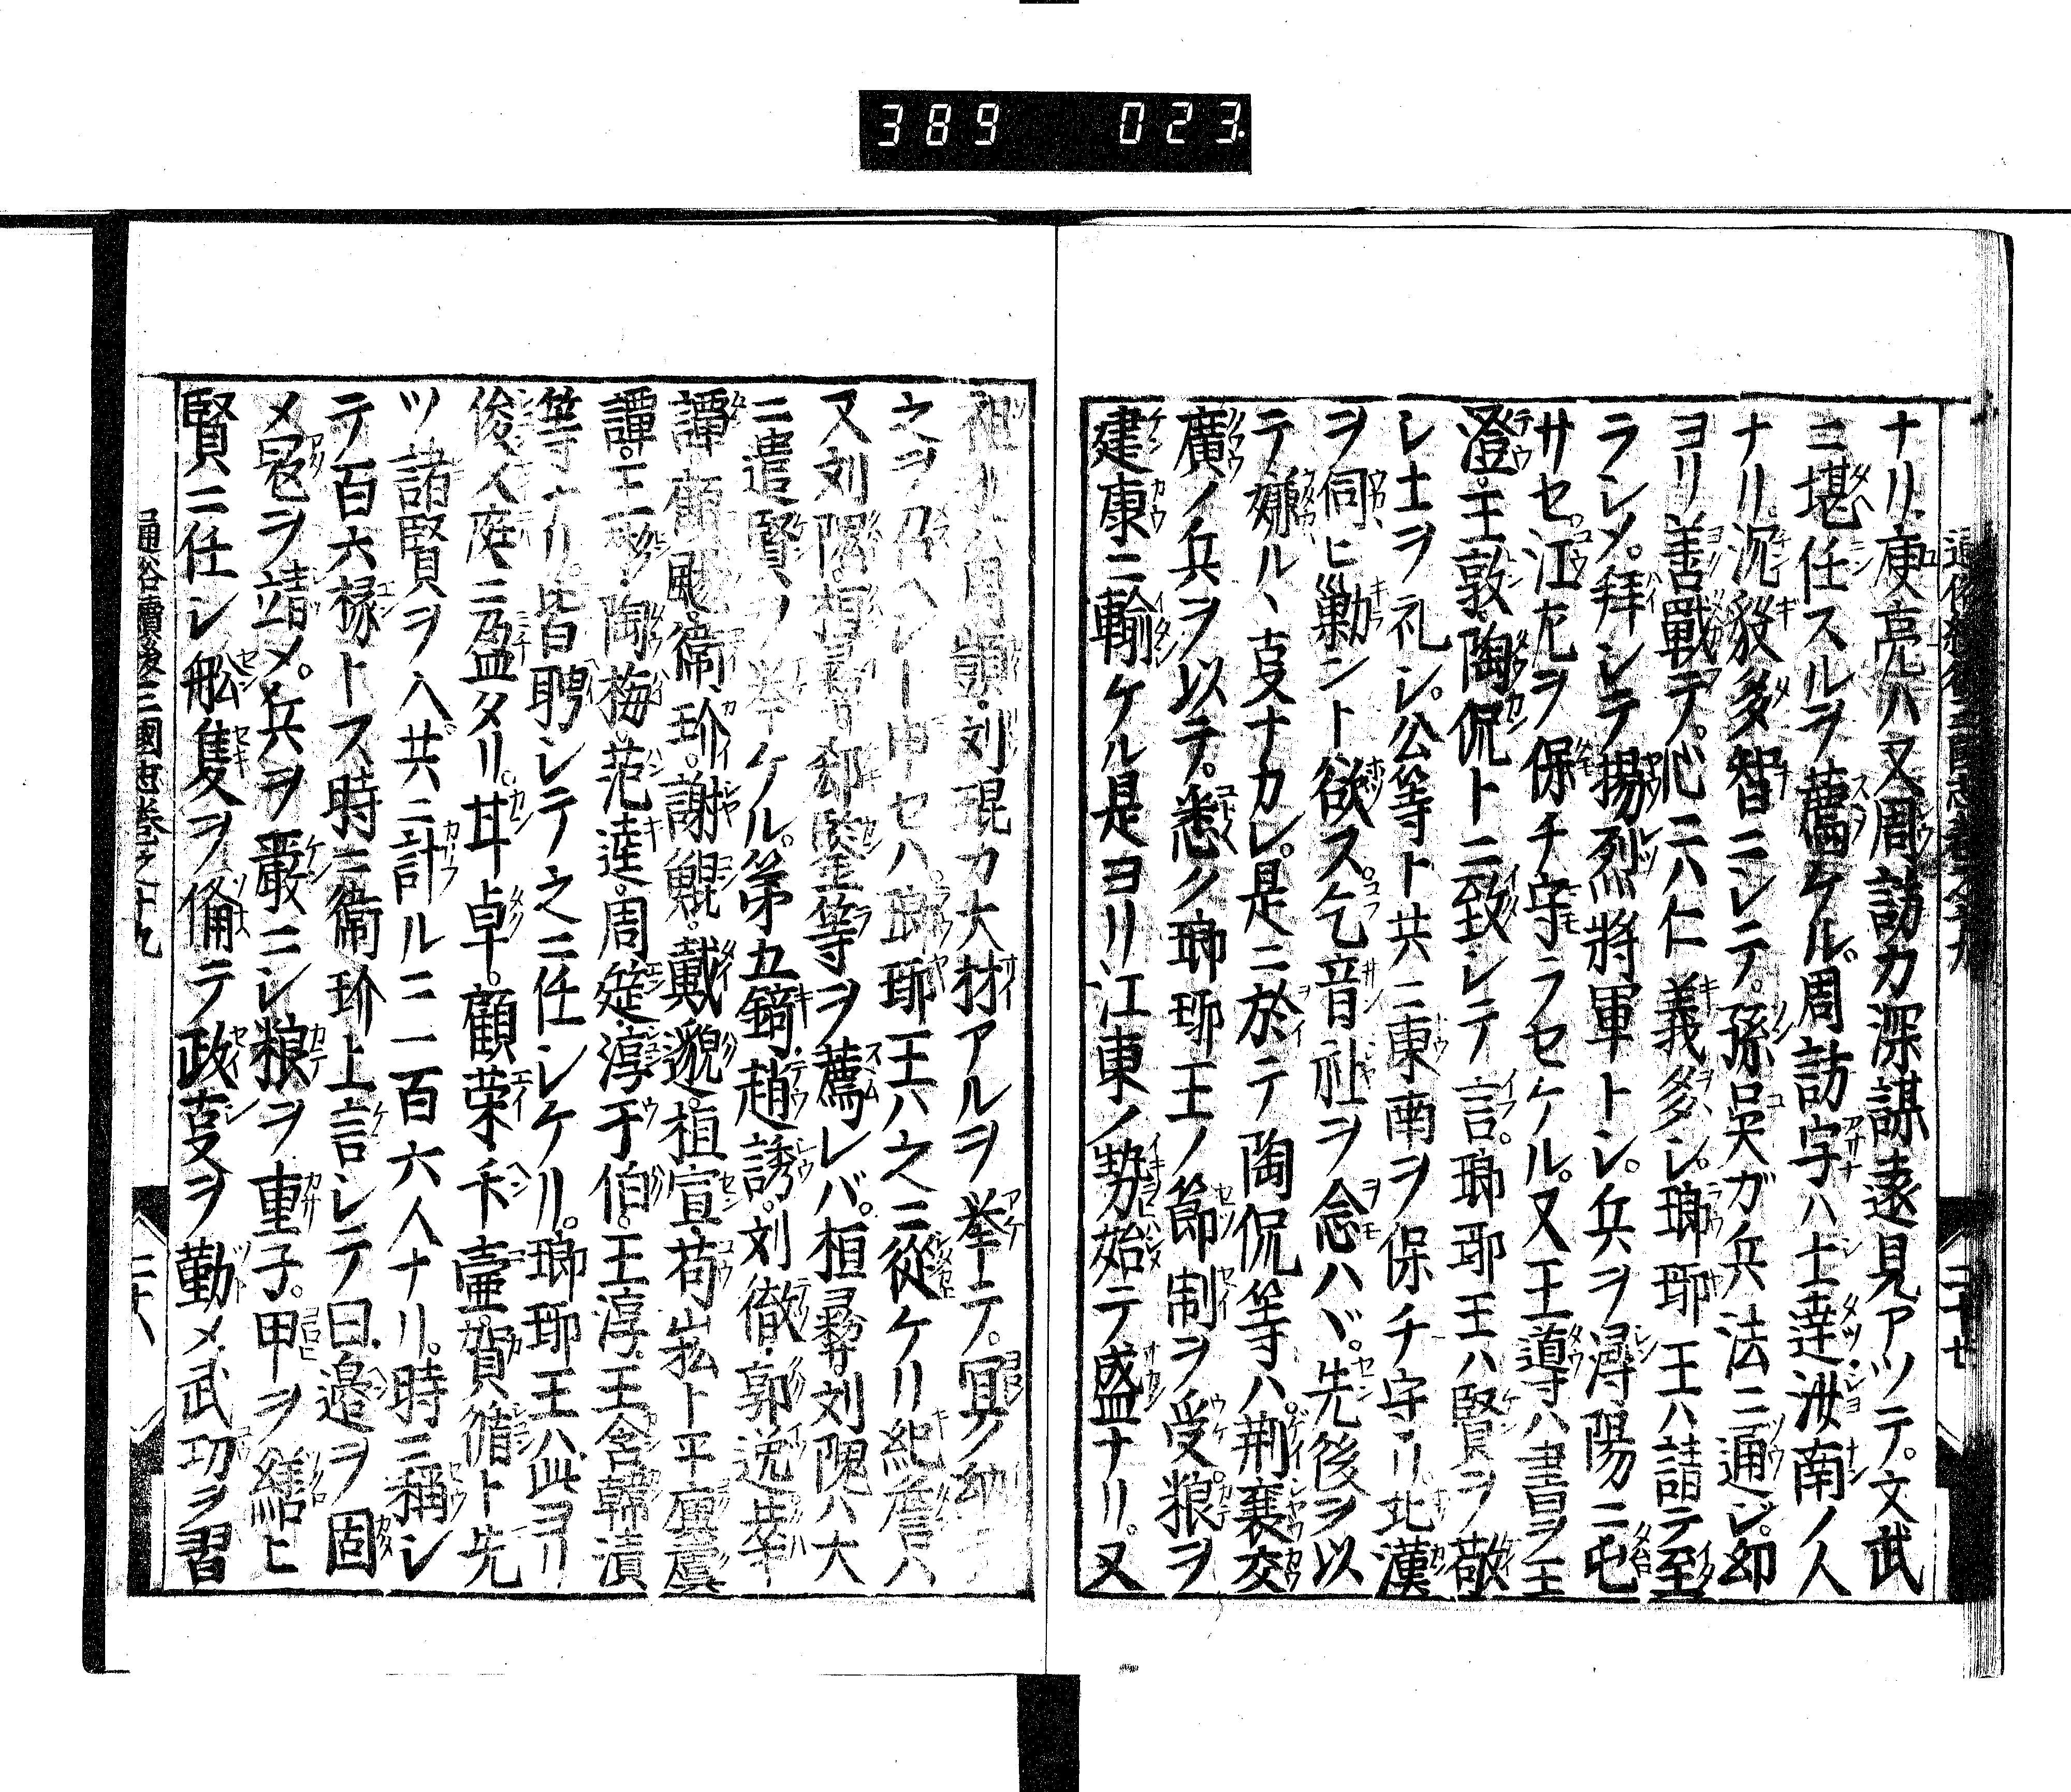 389 023.
ナリ庾亮ハ又周訪カ深謀遠見アツテ。文武
ニ堪任スルヲ薦ケル。周訪字ハ士達汝南ノ人
ナリ。沉毅多智ニシテ。孫呉ガ兵法ニ通ジ。幼
ヨリ善戰テ。心ニハ仁義多シ。瑯琊王ハ請テ至
ラシメ。拜シテ揚烈將軍トシ。兵ヲ潯陽ニ屯
サセ。江左ヲ保チ守ラセケル。又王導ハ書ヲ王
澄。王敦。陶侃トニ致シテ言。瑯琊王ハ賢ヲ敬
シ士ヲ礼シ。公等ト共ニ東南ヲ保チ守リ北漢
ヲ伺ヒ勦ント欲ス。乞音社ヲ念ハヾ。先後ヲ以
テ嫌ル丶叓ナカレ。是ニ於テ陶侃等ハ。荆襄交
廣ノ兵ヲ以テ。悉ク瑯琊王ノ節制ヲ受粮ヲ
建康ニ輸ケル是ヨリ江東ノ勢始テ盛ナリ。又
祖 周顗。刘琨カ大材アルヲ挙テ。冥ク幼
之ヲ召ヘシト申セハ。瑯琊王ハ之ニ從ケリ紀詹ハ
又刘隗。桓彛。郄鑒等ヲ薦レバ。桓彛。刘隗ハ大
ニ遣賢ノ挙ケル。第五錡。趙誘。刘徹。郭逸。莘
譚。顧颷。衛玠。謝鯤。戴邈。桓宣。苟崧ト平庾虞
譚。王 。陶梅。范逵。周筵。淳于伯。王淳。王含。韓漬
等ナリ。皆聘シテ之ニ任シケリ。瑯琊王ハ此ヨリ
俊乂庭ニ盈タリ。甘卓。顧栄。卞壷。賀循ト先
ツ諸賢ヲハ共ニ計ルニ一百六人ナリ。時ニ稱シ
テ百六掾トス時ニ衛玠上言シテ曰。邉ヲ固
メ冦ヲ靖メ。兵ヲ嚴ニシ粮ヲ重子。甲ヲ繕ヒ
賢ニ任シ舩隻ヲ俻テ政叓ヲ勤メ武功ヲ習
通俗續後三國志卷之十九
二十八